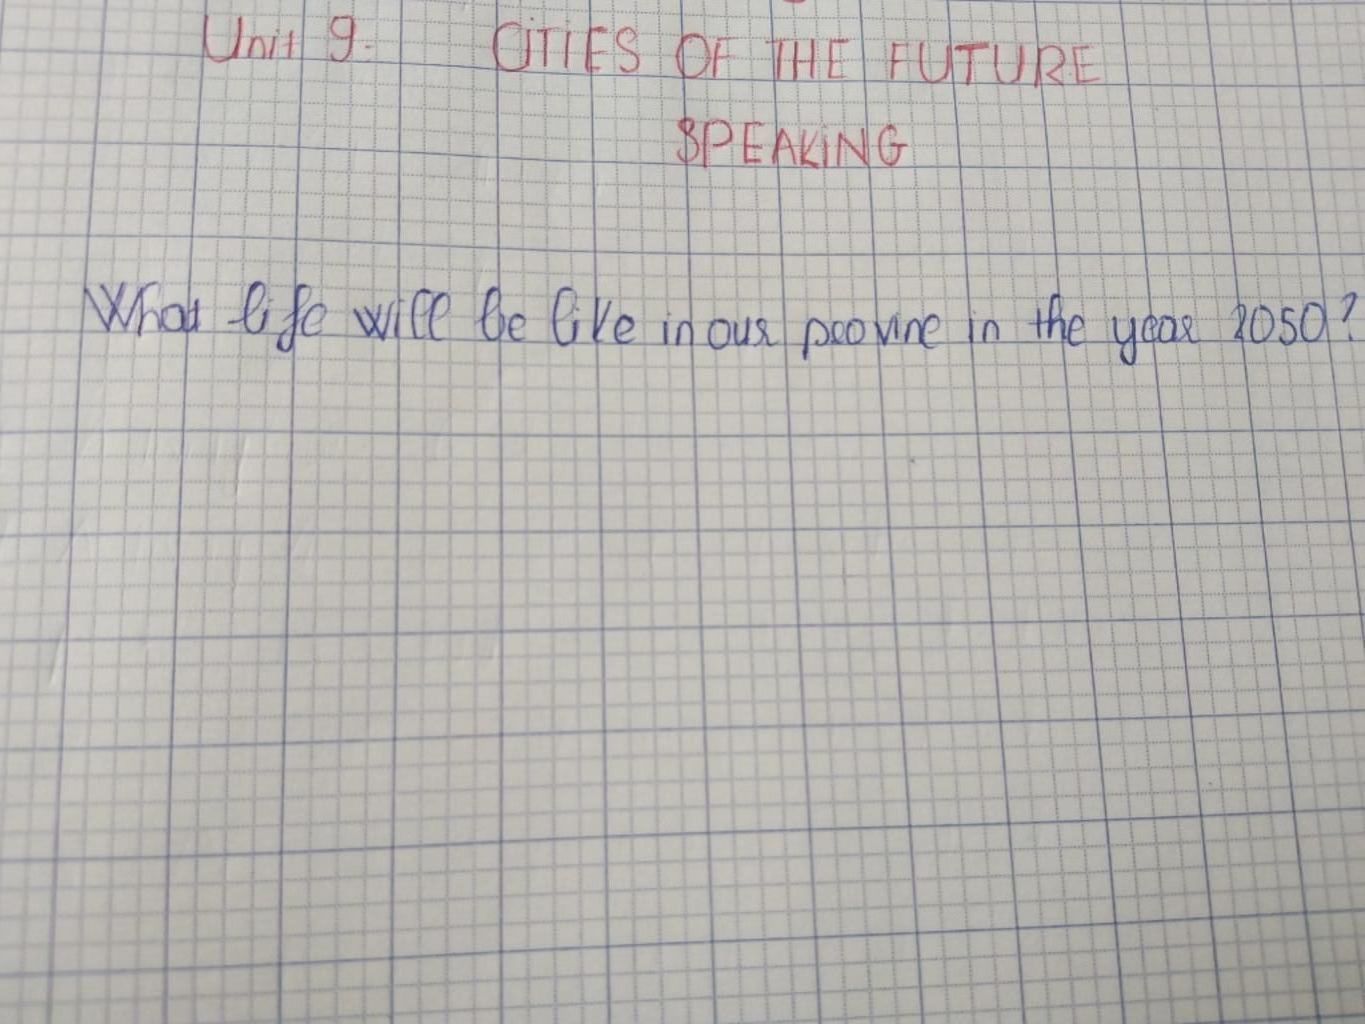 Unit 9. CITIES OF THE FUTURE
SPEAKING
What life will be like in our provine in the year 2050?